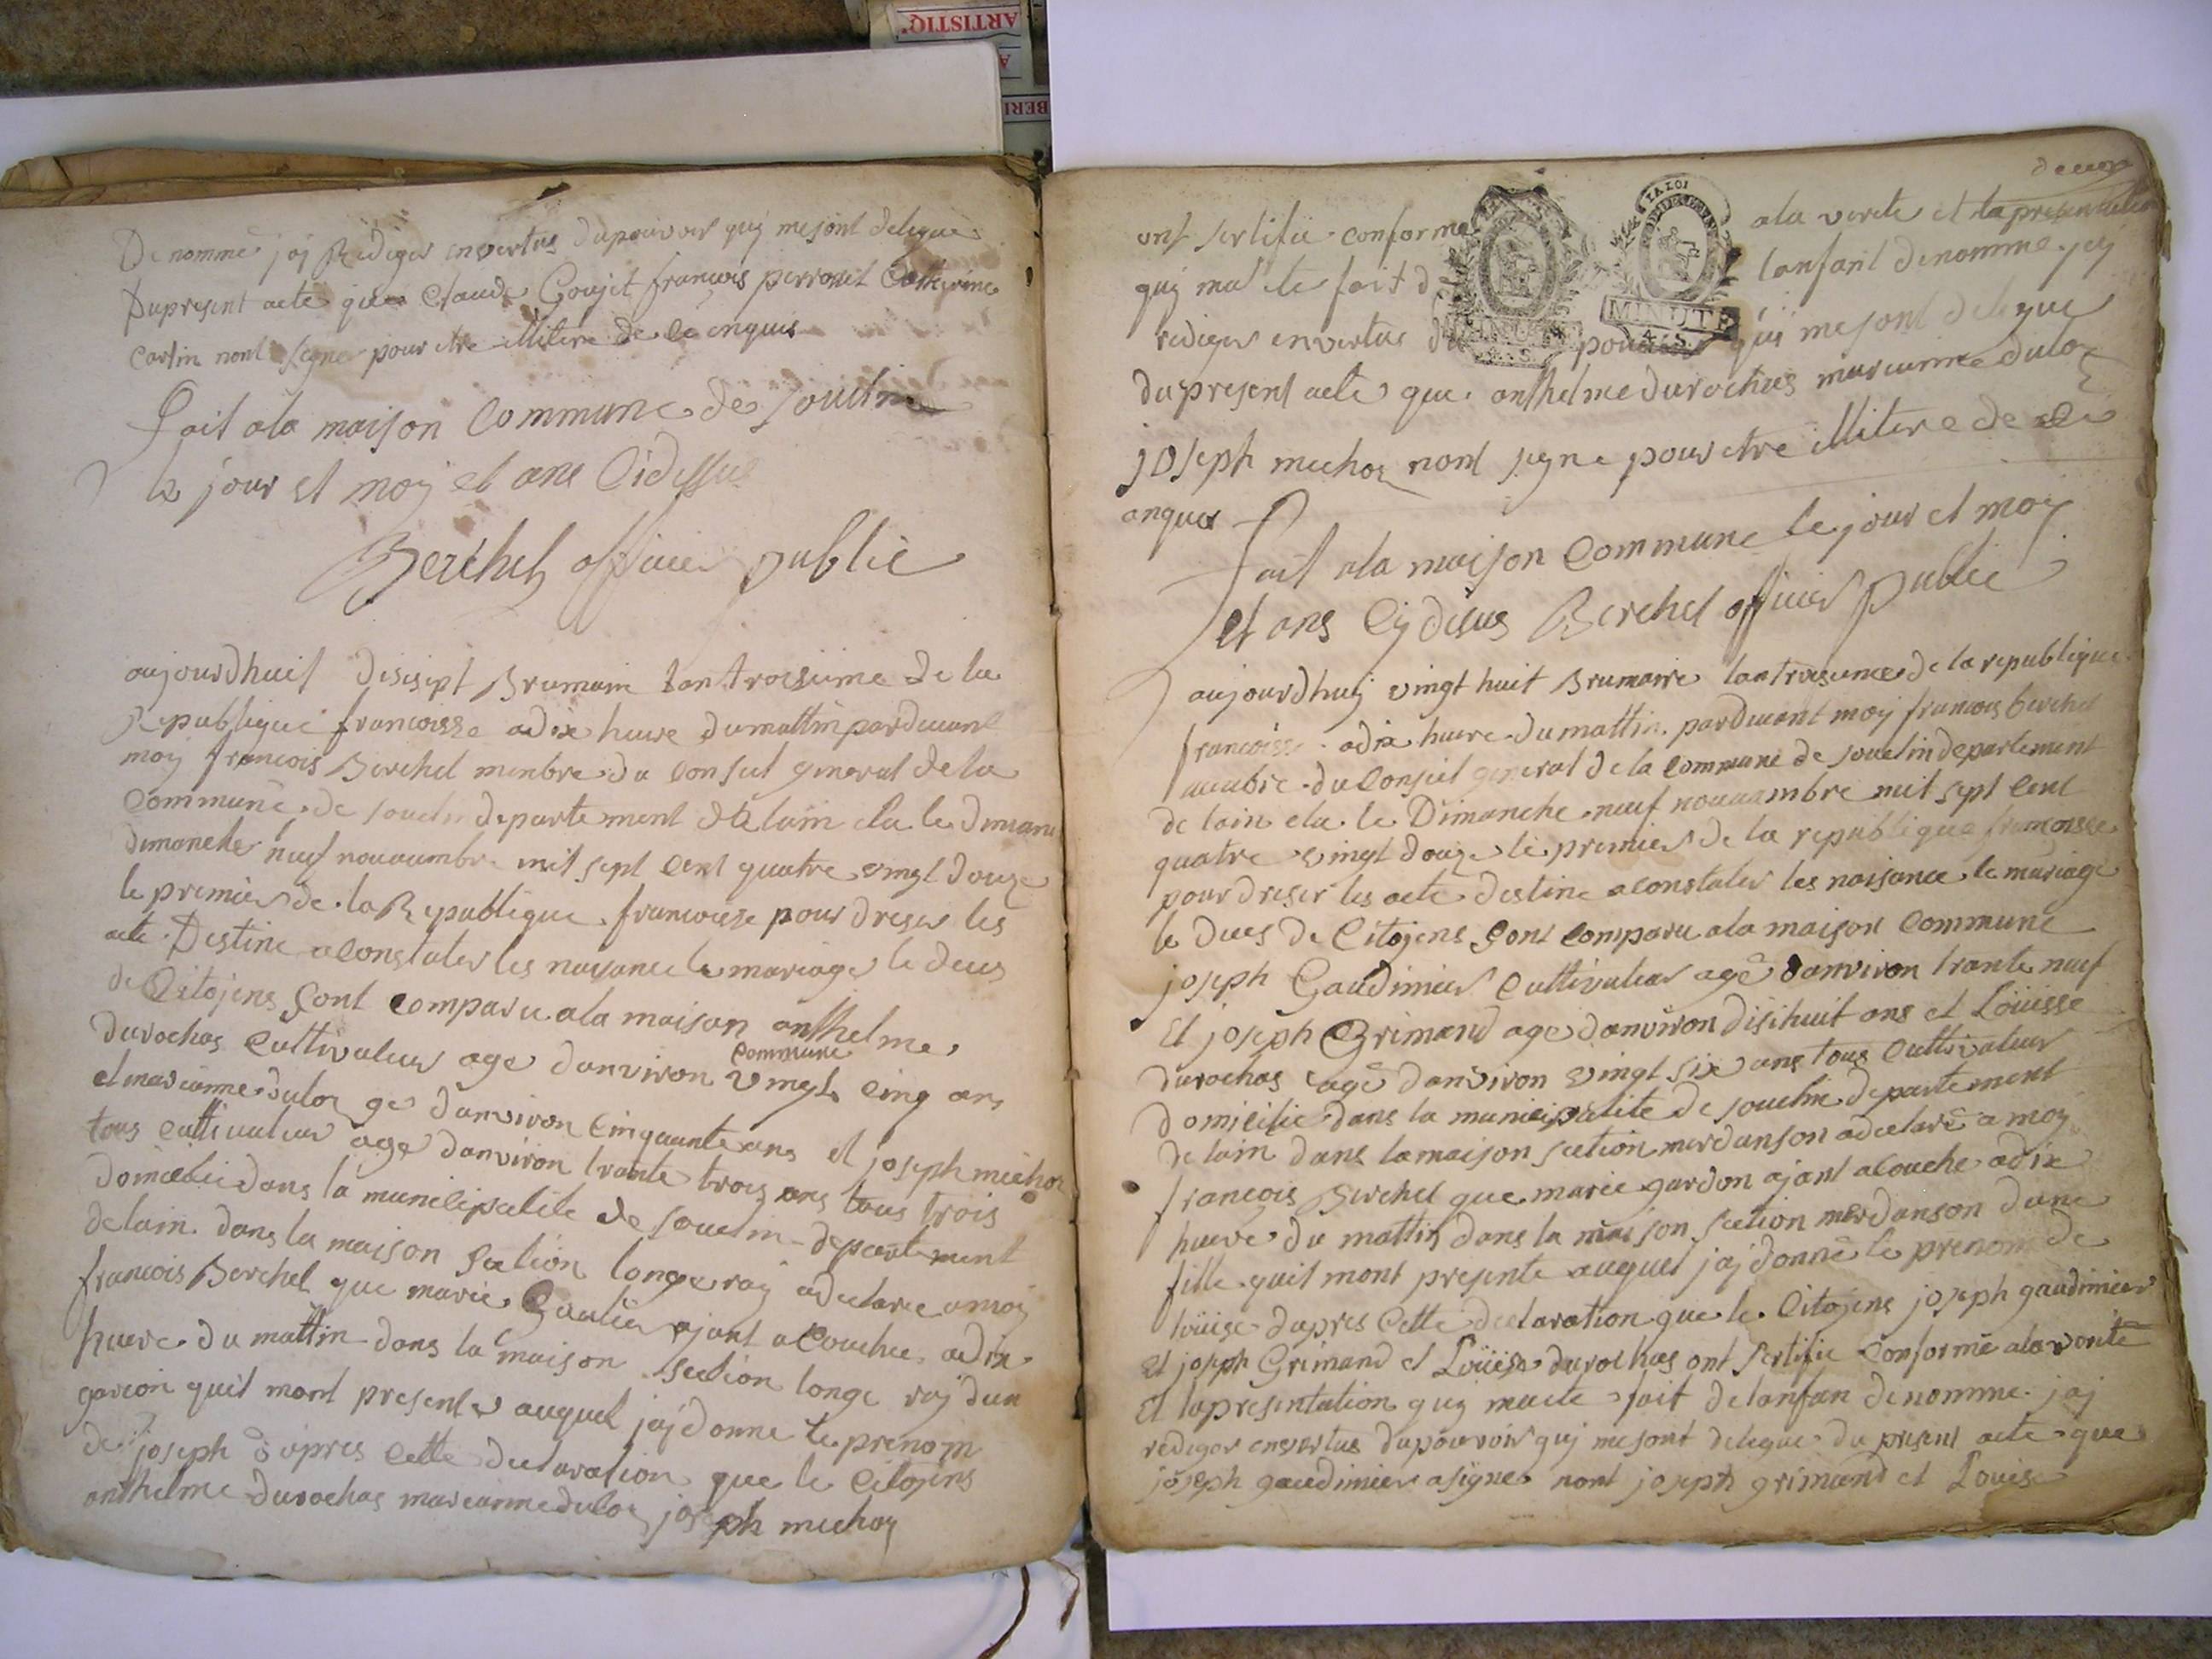 ARTISTIQ'
A
BERI
De nommé jaj Rediger en vertus dupouvoir quj mesont delegue
Dupresent acte que Claude Goujet francois perrouet Catherine
Cartin nont signer pour etre illitere de ce enquis
Fait ala maison Commune de soudin
le jour et moy et ans Cidessus
Berchet officier public
aujourdhuit disisept Brumaire lantroisieme de la
Republique francoisse adix heure dumattin pardevant
moy francois Berchet menbre du Conseil general de la
Commune de souclin departement de lain elu le diman
dimanche neuf novambre mil sept cent quatre vingt douze
le premier de la Republique francoise pour dreser les
acte Destine aConstater les naisance le mariage le deces
de Citojens Sont Comparu ala maison anthelme
commune
durochas Cultivateur age danviron vingt cinq ans
et marianne duloz ge danviron Cinquante ans et joseph michoz
tous cultivateur age danviron trante trois ans tous trois
domicilie dans la municipalite de souclin departement
delain dans la maison section longe raj adeclare amoj
francois Berchet que marie Gaulier ajant acouchee adix
heure du mattin dans la maison section longe raj dun
garcon quil mont presenter auquel jaj donne le prenom
de joseph dapres cette declaration que le Citojens
anthelme durochas marianne duloz joseph michoz
deuxe
ont sertifie conforme ala verite et la presentation
quj ma ete fait d lanfant denomme jaj
rediger en vertus du pouvoir qui mesont delegue
LA LOI
MINUTE
4.S.
MINUTE
4.S.
dupresent acte que anthelme durochas marianne duloz
joseph michoz nont signe pour etre illitere de ce
anquis
Fait ala maison Commune le jour et moy
et ans Cy desus Berchet officier public
aujourdhuj vingt huit Brumaire lantroisieme de la republique
francoisse adix heure du mattin pardevant moy francois berchet
menbre du Conseil general de la commune de souclin departement
de lain elu le Dimanche neuf novambre mil sept cent
quatre vingt douze le premier de la republique francoisse
pour dreser les acte destine aConstater les naisance le mariage
le deces de Citojens Sont Comparu ala maison Commune
joseph Gaudimier Cultivateur agé danviron trante neuf
Et joseph Grimand age danviron disihuit ans et Loüisse
durochas agé danviron vingt six ans tous Cultivateur
Domicilie dans la municipalite de souclin departement
de lain dans lamaison section merdanson adeclare a moy
francois Berchet que marie gardon ajant alouche adix
heure du mattin dans la maison section merdanson dune
fille quil mont presente auquel jaj donné le prenom de
loüise dapres cette declaration que le Citojens joseph gaudimier
Et joseph Grimand et Loüise durochas ont sertifie Conforme ala verité
Et lapresentation quj ma ete fait de lanfan denomme jaj
rediger en vertus dupouvoir quj mesont delegue du present acte que
joseph gaudimier asigner nont joseph grimand et Louise